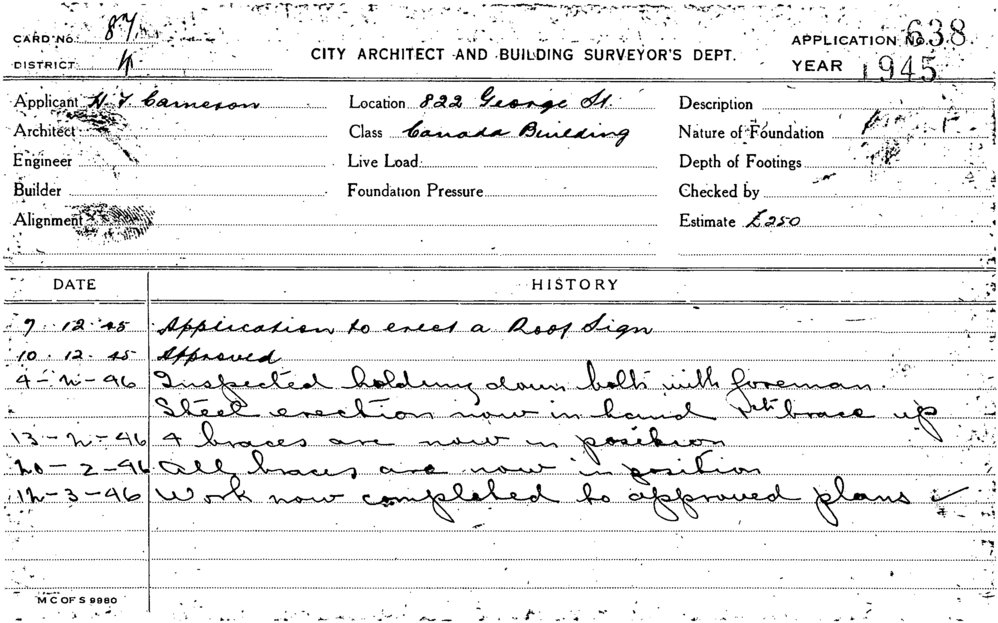 CARD No. 87
DISTRICT 4
CITY ARCHITECT AND BUILDING SURVEYOR'S DEPT.
APPLICATION No. 638
YEAR 1945
Applicant H. J. Cameron
Location 822 George St.
Description
Architect
Class Canada Building
Nature of Foundation
Engineer
Live Load
Depth of Footings
Builder
Foundation Pressure
Checked by
Alignment
Estimate £250
DATE HISTORY
7 . 12 . 45 Application to erect a Roof Sign
10 . 12 . 45 Approved
4 - 2 - 46 Inspected holding down bolts with foreman.
Steel erection now in hand brace up
13 - 2 - 46 4 braces are now in position
20 - 2 - 46 All braces are now in position
12 - 3 - 46 Work now completed to approved plans ✓
M C OF S 9980